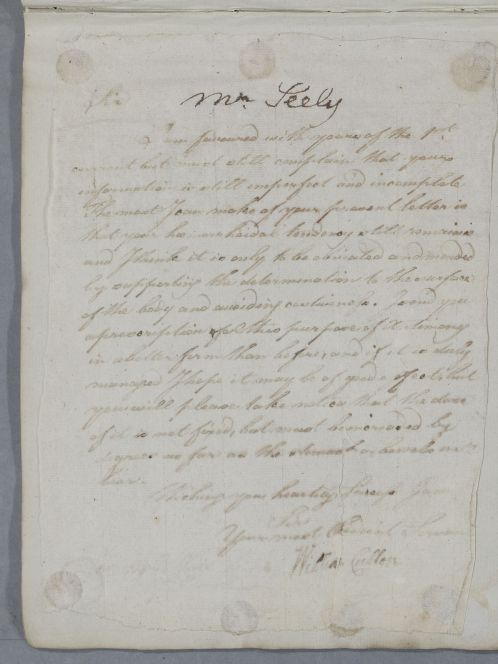 Mr. Seely
Sir
I am favoured with yours of the 1st.
current but must still complain that your
information is still imperfect and incomplete
The most I can make of your present letter is
that your hæmorrhoidal tendency still remains
and I think it is only to be obviated and mended
by supporting the determination to the surface
of the body and avoiding costiveness. I send you
a prescription for this purpose of it strong
in a better form than before, and if it is duly
managed I hope it may be of good effect, but
you will please take notice that the dose
of it is not fixed, but must be increased by
degrees as far as the stomach or bowels
bear.
Wishing you heartily Success I am
Sir
Your most Obedient Servant
William Cullen